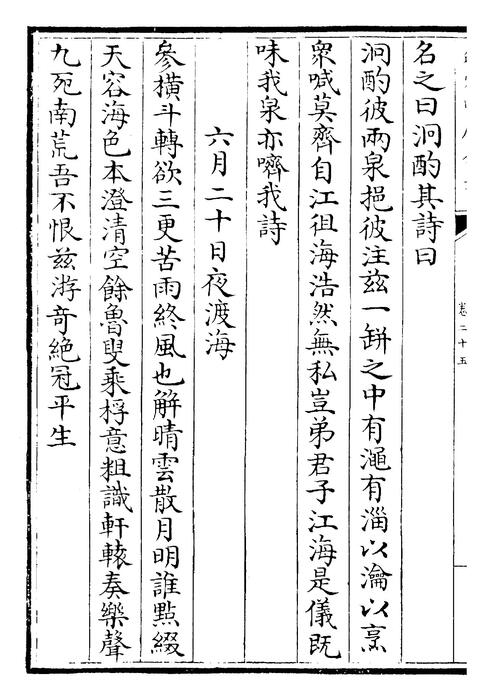 名之曰泂酌其詩曰
泂酌彼兩泉挹彼注茲一缾之中有澠有淄以瀹以烹
衆喊莫齊自江徂海浩然無私豈弟君子江海是儀既
味我泉亦嚌我詩
六月二十日夜渡海
參橫斗轉欲三更苦雨終風也解晴雲散月明誰點綴
天容海色本澄清空餘魯叟乘桴意粗識軒轅奏樂聲
九死南荒吾不恨茲游奇絕冠平生
卷二十五